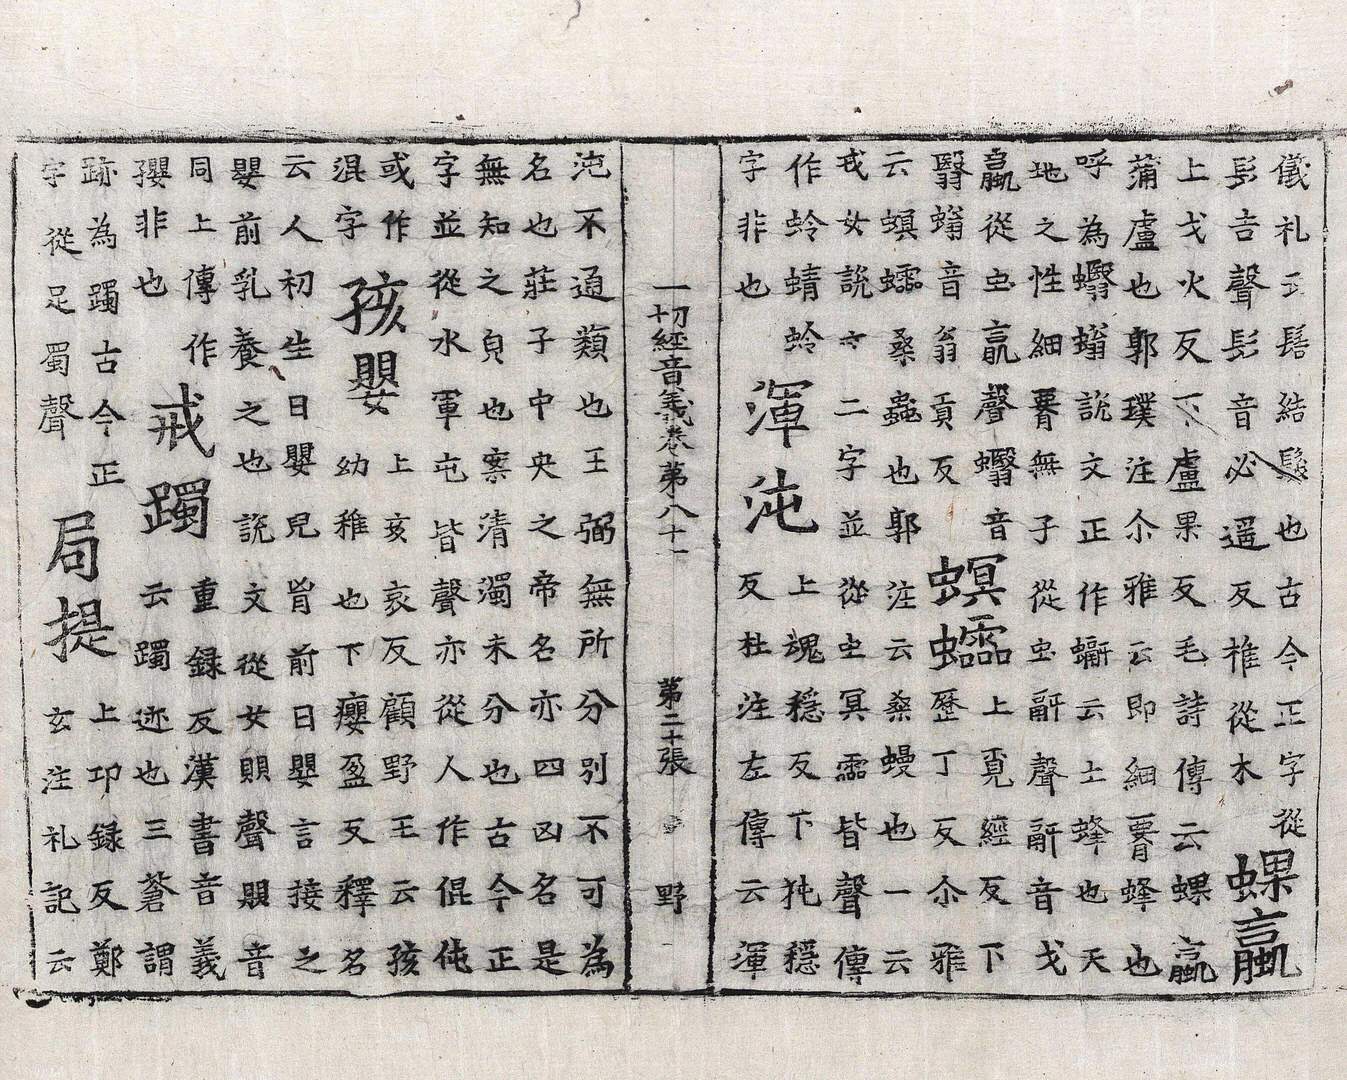 儀礼云髻結髮也古今正字從
髟吉聲髟音必遥反椎從木蜾蠃
上戈火反下盧果反毛詩傳云蜾蠃
蒲盧也郭璞注尒雅云即細𦝫蜂也
呼為蠮螉說文正作蠣云土蜂也天
地之性細𦝫無子從虫𠫤聲𠫤音戈
蠃從虫𣎆聲蠮音
翳螉音翁貢反螟蠕上覓經反下歷丁反尒雅
云螟蠕桑蟲也郭注云桑蟃也一云
戎女說文二字並從虫冥霝皆聲傳
作蛉蜻蛉渾沌上魂穩反下㹠穩
字非也反杜注左傳云渾
一切經音義卷第八十一 第二十張 野
沌不通類也王弼無所分別不可為
名也莊子中央之帝名亦四凶名是
無知之皃也案清濁未分也古今正
字並從水軍屯皆聲亦從人作倱伅
或作孩嬰上亥哀反顧野王云孩
混字幼稚也下癭盈反釋名
云人初生曰嬰兒𦙄前曰嬰言接之
嬰前乳養之也說文從女賏聲賏音
同上傳作戒躅重録反漢書音義
㜸非也云躅迹也三蒼謂
跡為躅古今正局提上卭録反鄭
字從足蜀聲玄注礼記云